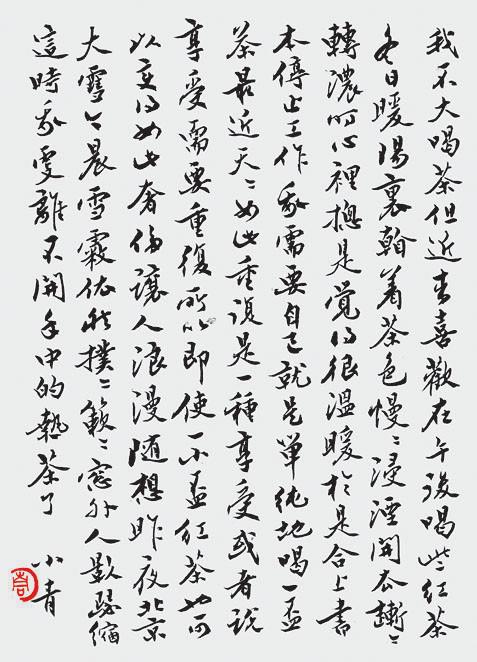 我不大喝茶但近来喜歡在午後喝些红茶
冬日暖陽裏翰着茶色慢〻浸湮開去漸〻
轉濃時心裡總是覺得很溫暖於是合上書
本停止工作我需要自己就是單純地喝一盃
茶最近天〻如此重復是一種享受或者说
享受需要重復所以即使一小盃红茶也可
以变得如此奢侈讓人浪漫随想昨夜北京
大雪今晨雪霰依然撲〻簌〻窓外人影瑟缩
這時我更離不開手中的熱茶了
小青